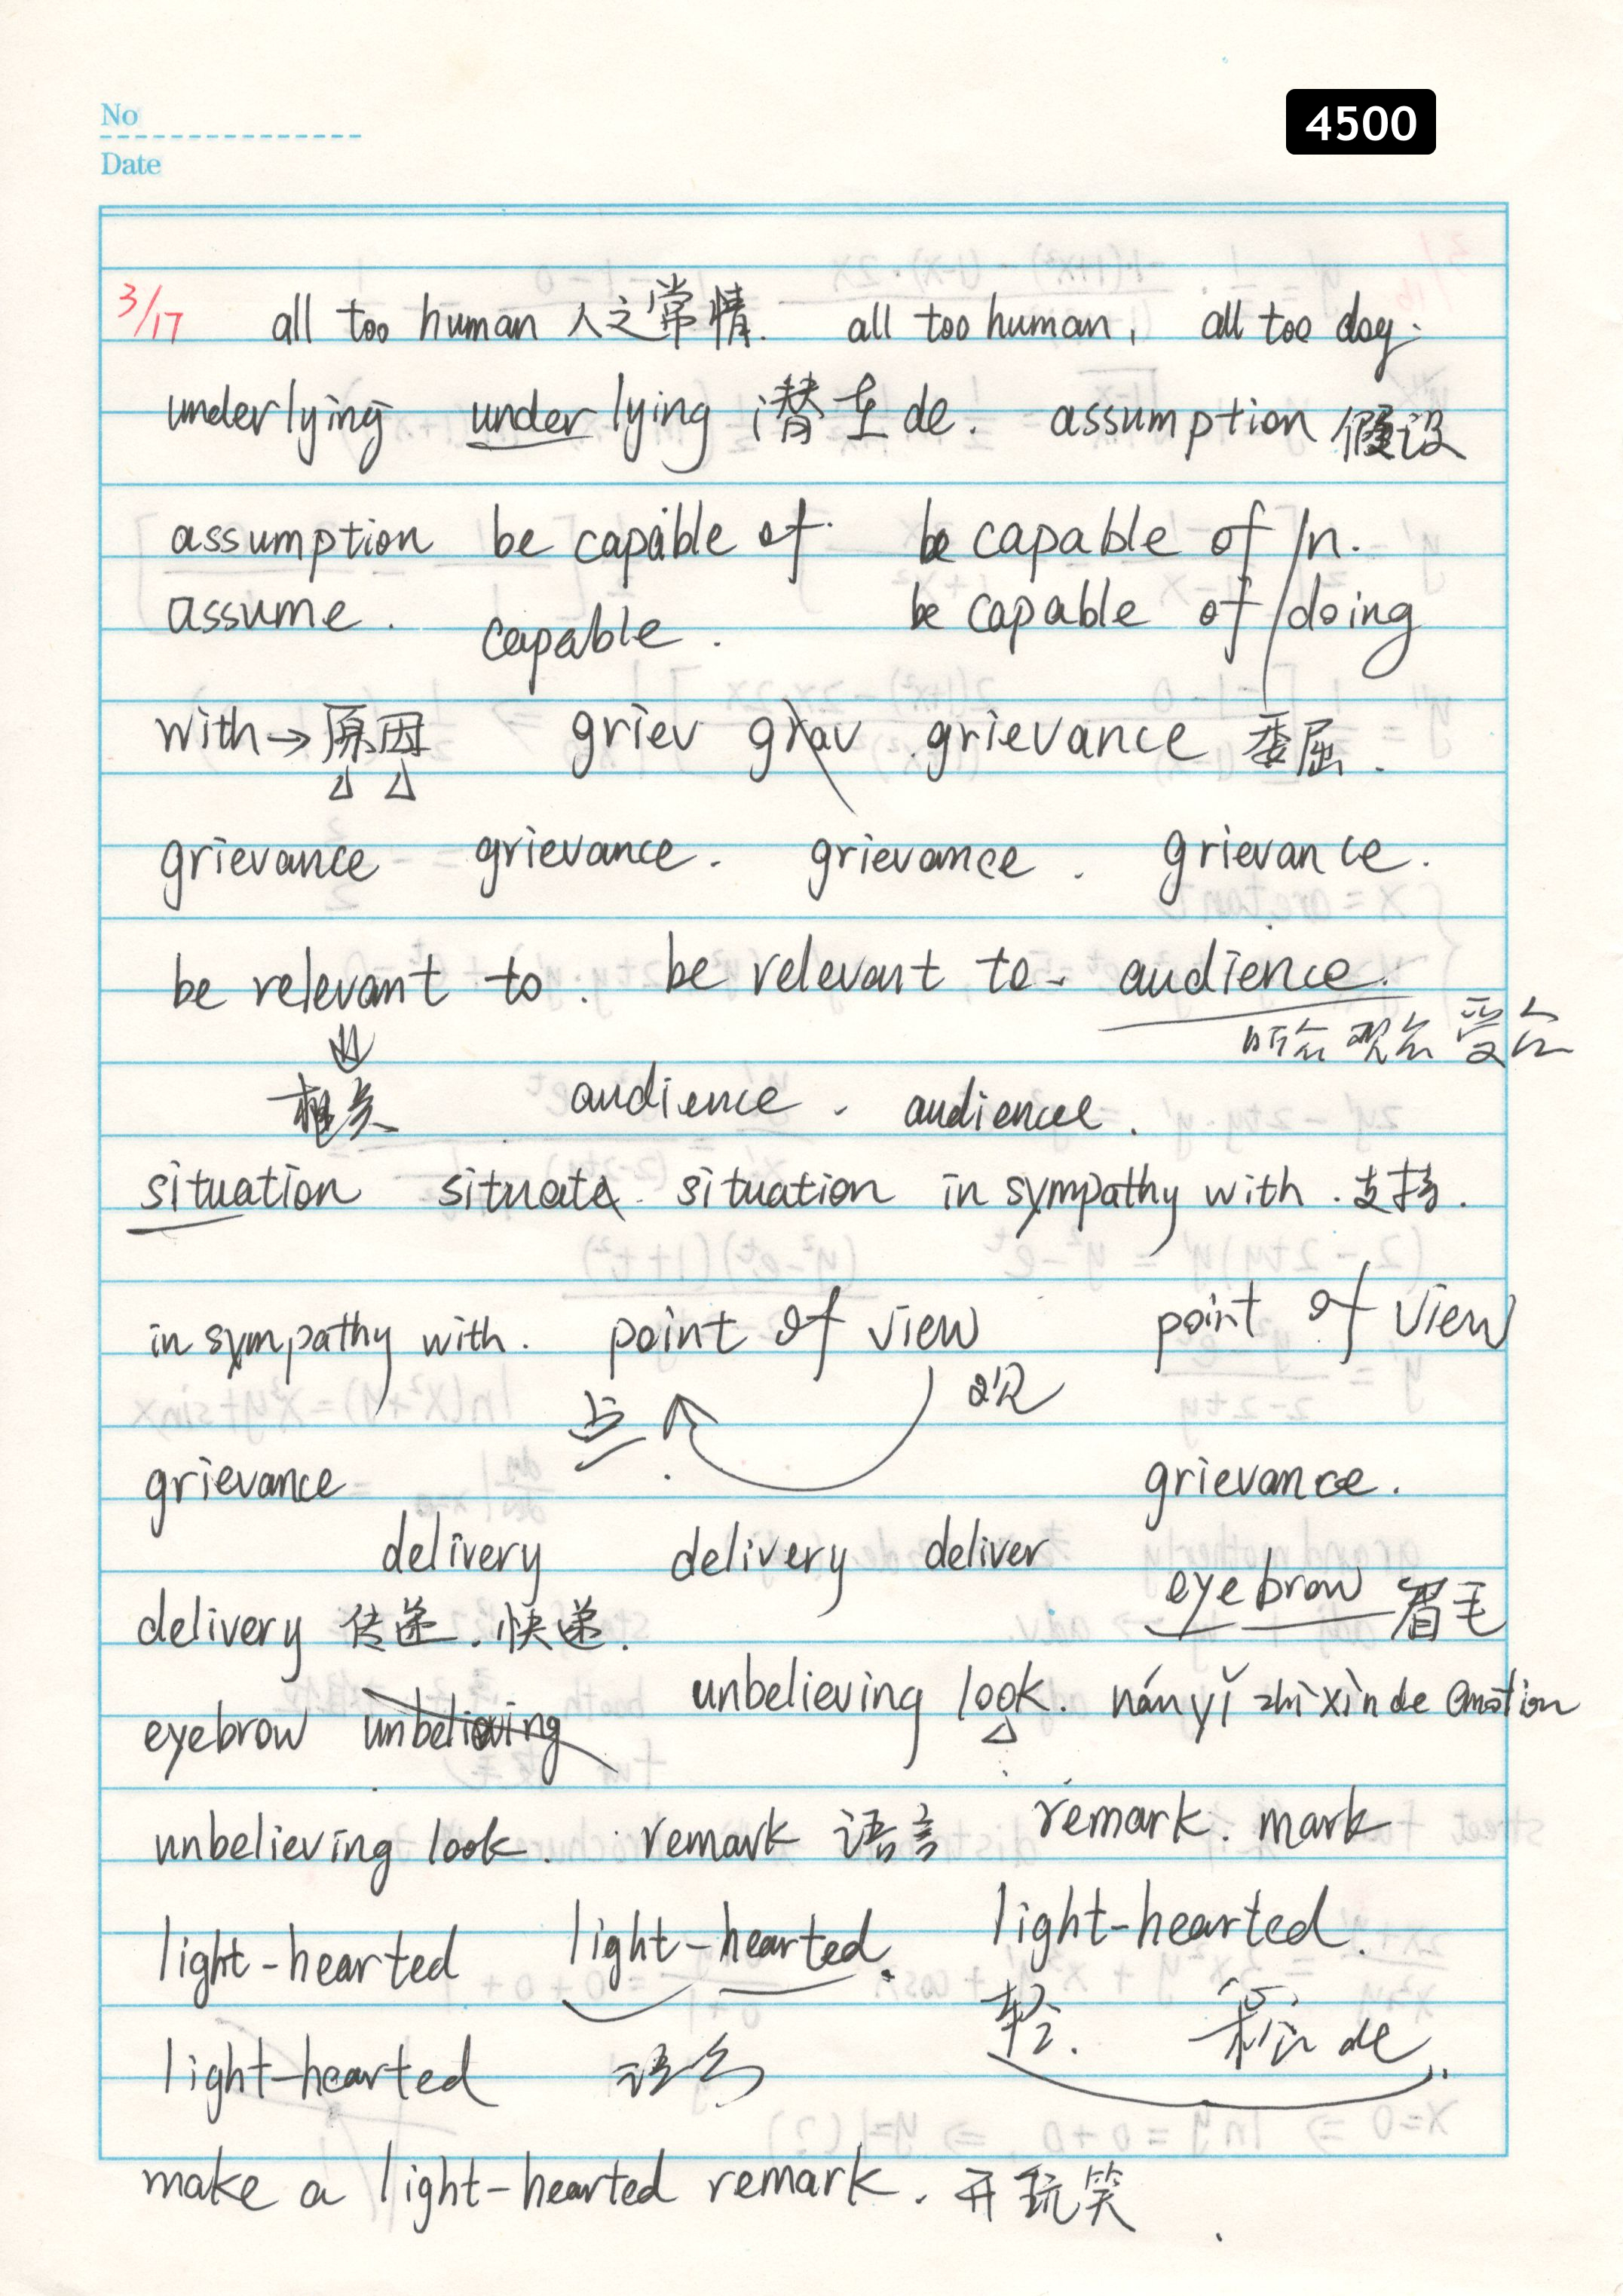 No
Date
4500
3/17 all too human 人之常情. all too human, all too dog.
underlying underlying 潜在de. assumption 假设
assumption be capable of. be capable of /n.
assume. capable. be capable of /doing
with→原因 griev grav grievance 委屈.
grievance grievance. grievance. grievance.
be relevant to. be relevant to. audience.
听众 观众 受众
相关 audience. audience.
situation situate situation in sympathy with. 支持.
in sympathy with. point of view point of view
点 观
grievance grievance.
delivery delivery deliver
eyebrow 眉毛
delivery 传递. 快递.
unbelieving look. nányǐ zhìxìn de emotion
eyebrow unbelieving
unbelieving look. remark 语言 remark. mark
light-hearted light-hearted. light-hearted.
轻. 松 de
light-hearted
make a light-hearted remark. 开玩笑.